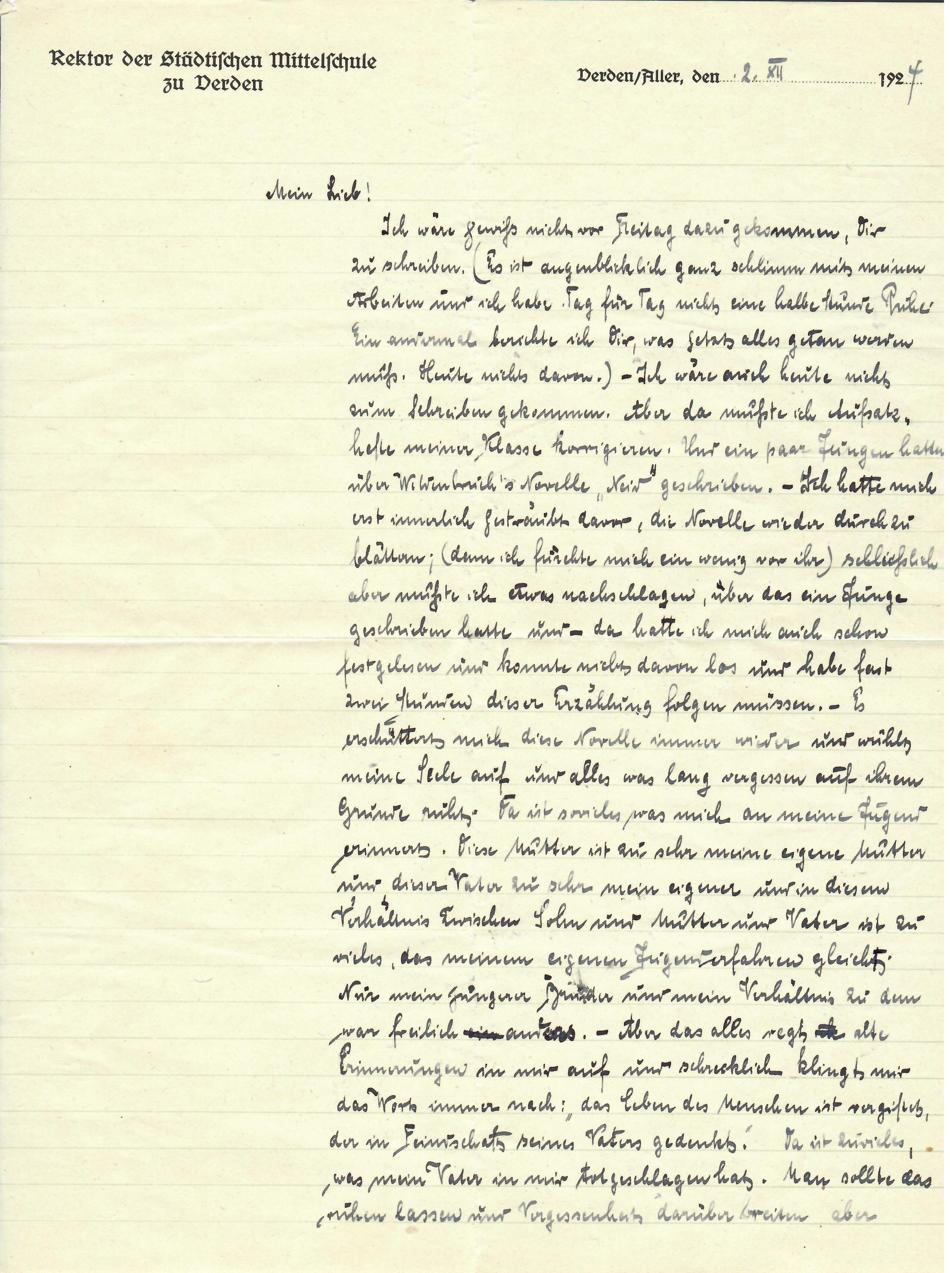 Rektor der Städtischen Mittelschule
zu Verden
Verden/Aller, den 2. XII 1924
Mein Lieb!
Ich wäre gewiß nicht vor Freitag dazu gekommen, Dir
zu schreiben. (Es ist augenblicklich ganz schlimm mit meinen
Arbeiten und ich habe Tag für Tag nicht eine halbe Stunde Ruhe.
Ein andermal berichte ich Dir, was jetzt alles getan werden
muß. Heute nichts davon.) – Ich wäre auch heute nicht
zum Schreiben gekommen. Aber da mußte ich Aufsatz-
hefte meiner Klasse korrigieren. Und ein paar Jungen hatten
über Wildenbruch's Novelle „Neid“ geschrieben. – Ich hatte mich
erst innerlich gesträubt davor, die Novelle wieder durchzu
blättern; (denn ich fürchte mich ein wenig vor ihr) schließlich
aber mußte ich etwas nachschlagen, über das ein Junge
geschrieben hatte und – da hatte ich mich auch schon
festgelesen und konnte nicht davon los und habe fast
zwei Stunden dieser Erzählung folgen müssen. – Es
erschüttert mich diese Novelle immer wieder und wühlt
meine Seele auf und alles was lang vergessen auf ihrem
Grunde ruht. Da ist sovieles, was mich an meine Jugend
erinnert. Diese Mutter ist zu sehr meine eigene Mutter
und dieser Vater zu sehr mein eigener und in diesem
Verhältnis zwischen Sohn und Mutter und Vater ist zu
vieles, das meinem eigenen Jugenderfahren gleicht.
Nur mein jüngerer Bruder und mein Verhältnis zu dem
war freilich anders. – Aber das alles regt alte
Erinnerungen in mir auf und schrecklich klingt mir
das Wort immer nach: „das Leben des Menschen ist vergiftet,
der in Feindschaft seines Vaters gedenkt.“ Da ist zuvieles,
was mein Vater in mir totgeschlagen hat. Man sollte das
ruhen lassen und Vergessenheit darüber breiten aber